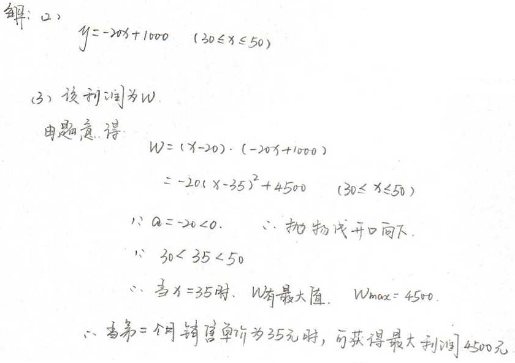 解: (2)
y=-20x+1000 (30≤x≤50)
(3) 设利润为W.
由题意得
W=(x-20)·(-20x+1000)
=-20(x-35)²+4500 (30≤x≤50)
∵ a=-20<0. ∴抛物线开口向下.
∵ 30<35<50
∴ 当x=35时. W有最大值. Wmax=4500.
∴ 当第二个月销售单价为35元时, 可获得最大利润4500元